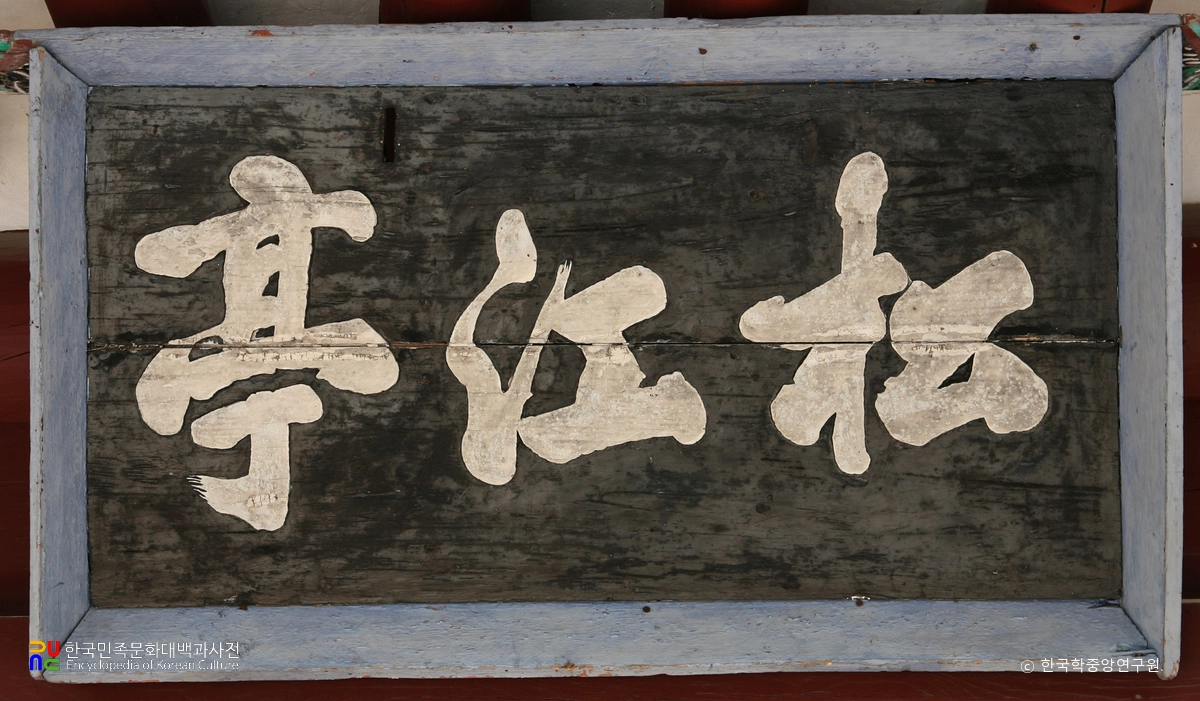 松江亭
한국민족문화대백과사전
Encyclopedia of Korean Culture
ⓒ 한국학중앙연구원